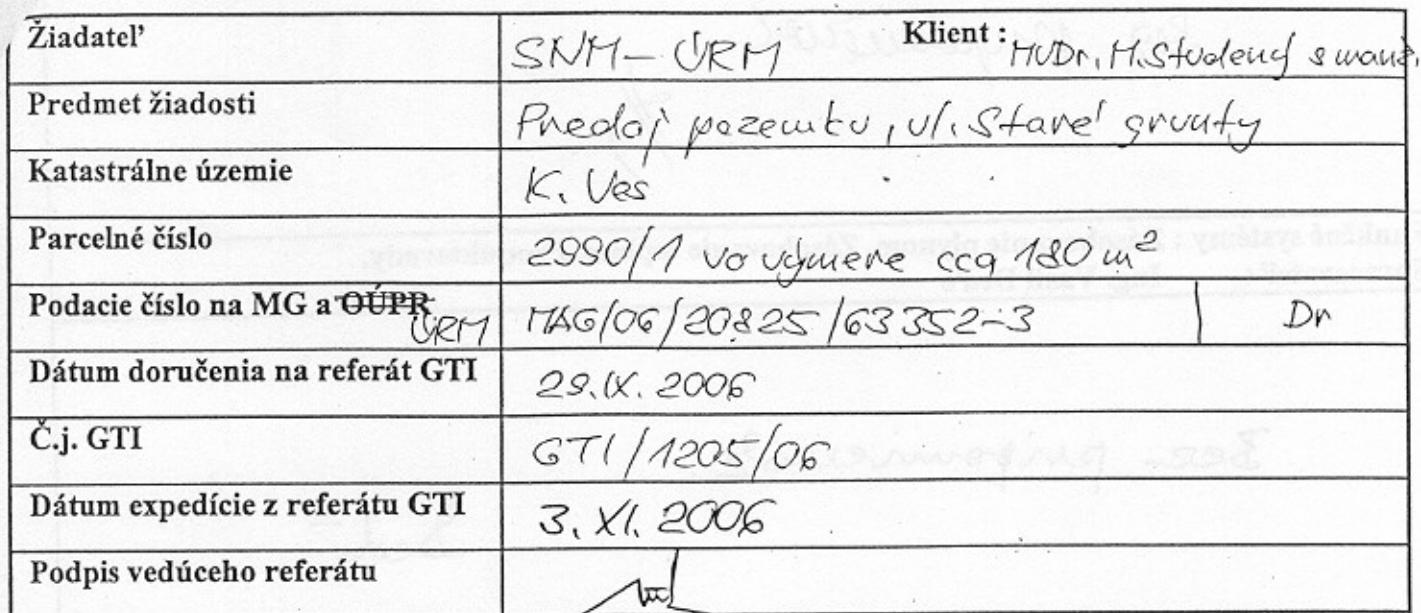 Žiadateľ SNM – ÚRM Klient : MUDr. M. Študený s manž.
Predmet žiadosti Predaj pozemku, ul. Staré grunty
Katastrálne územie K. Ves
Parcelné číslo 2990/1 vo výmere cca 180 m²
Podacie číslo na MG a OÚPR ÚRM MAG/06/20825/63352-3 Dr
Dátum doručenia na referát GTI 29.IX. 2006
Č.j. GTI GTI/1205/06
Dátum expedície z referátu GTI 3. XI. 2006
Podpis vedúceho referátu